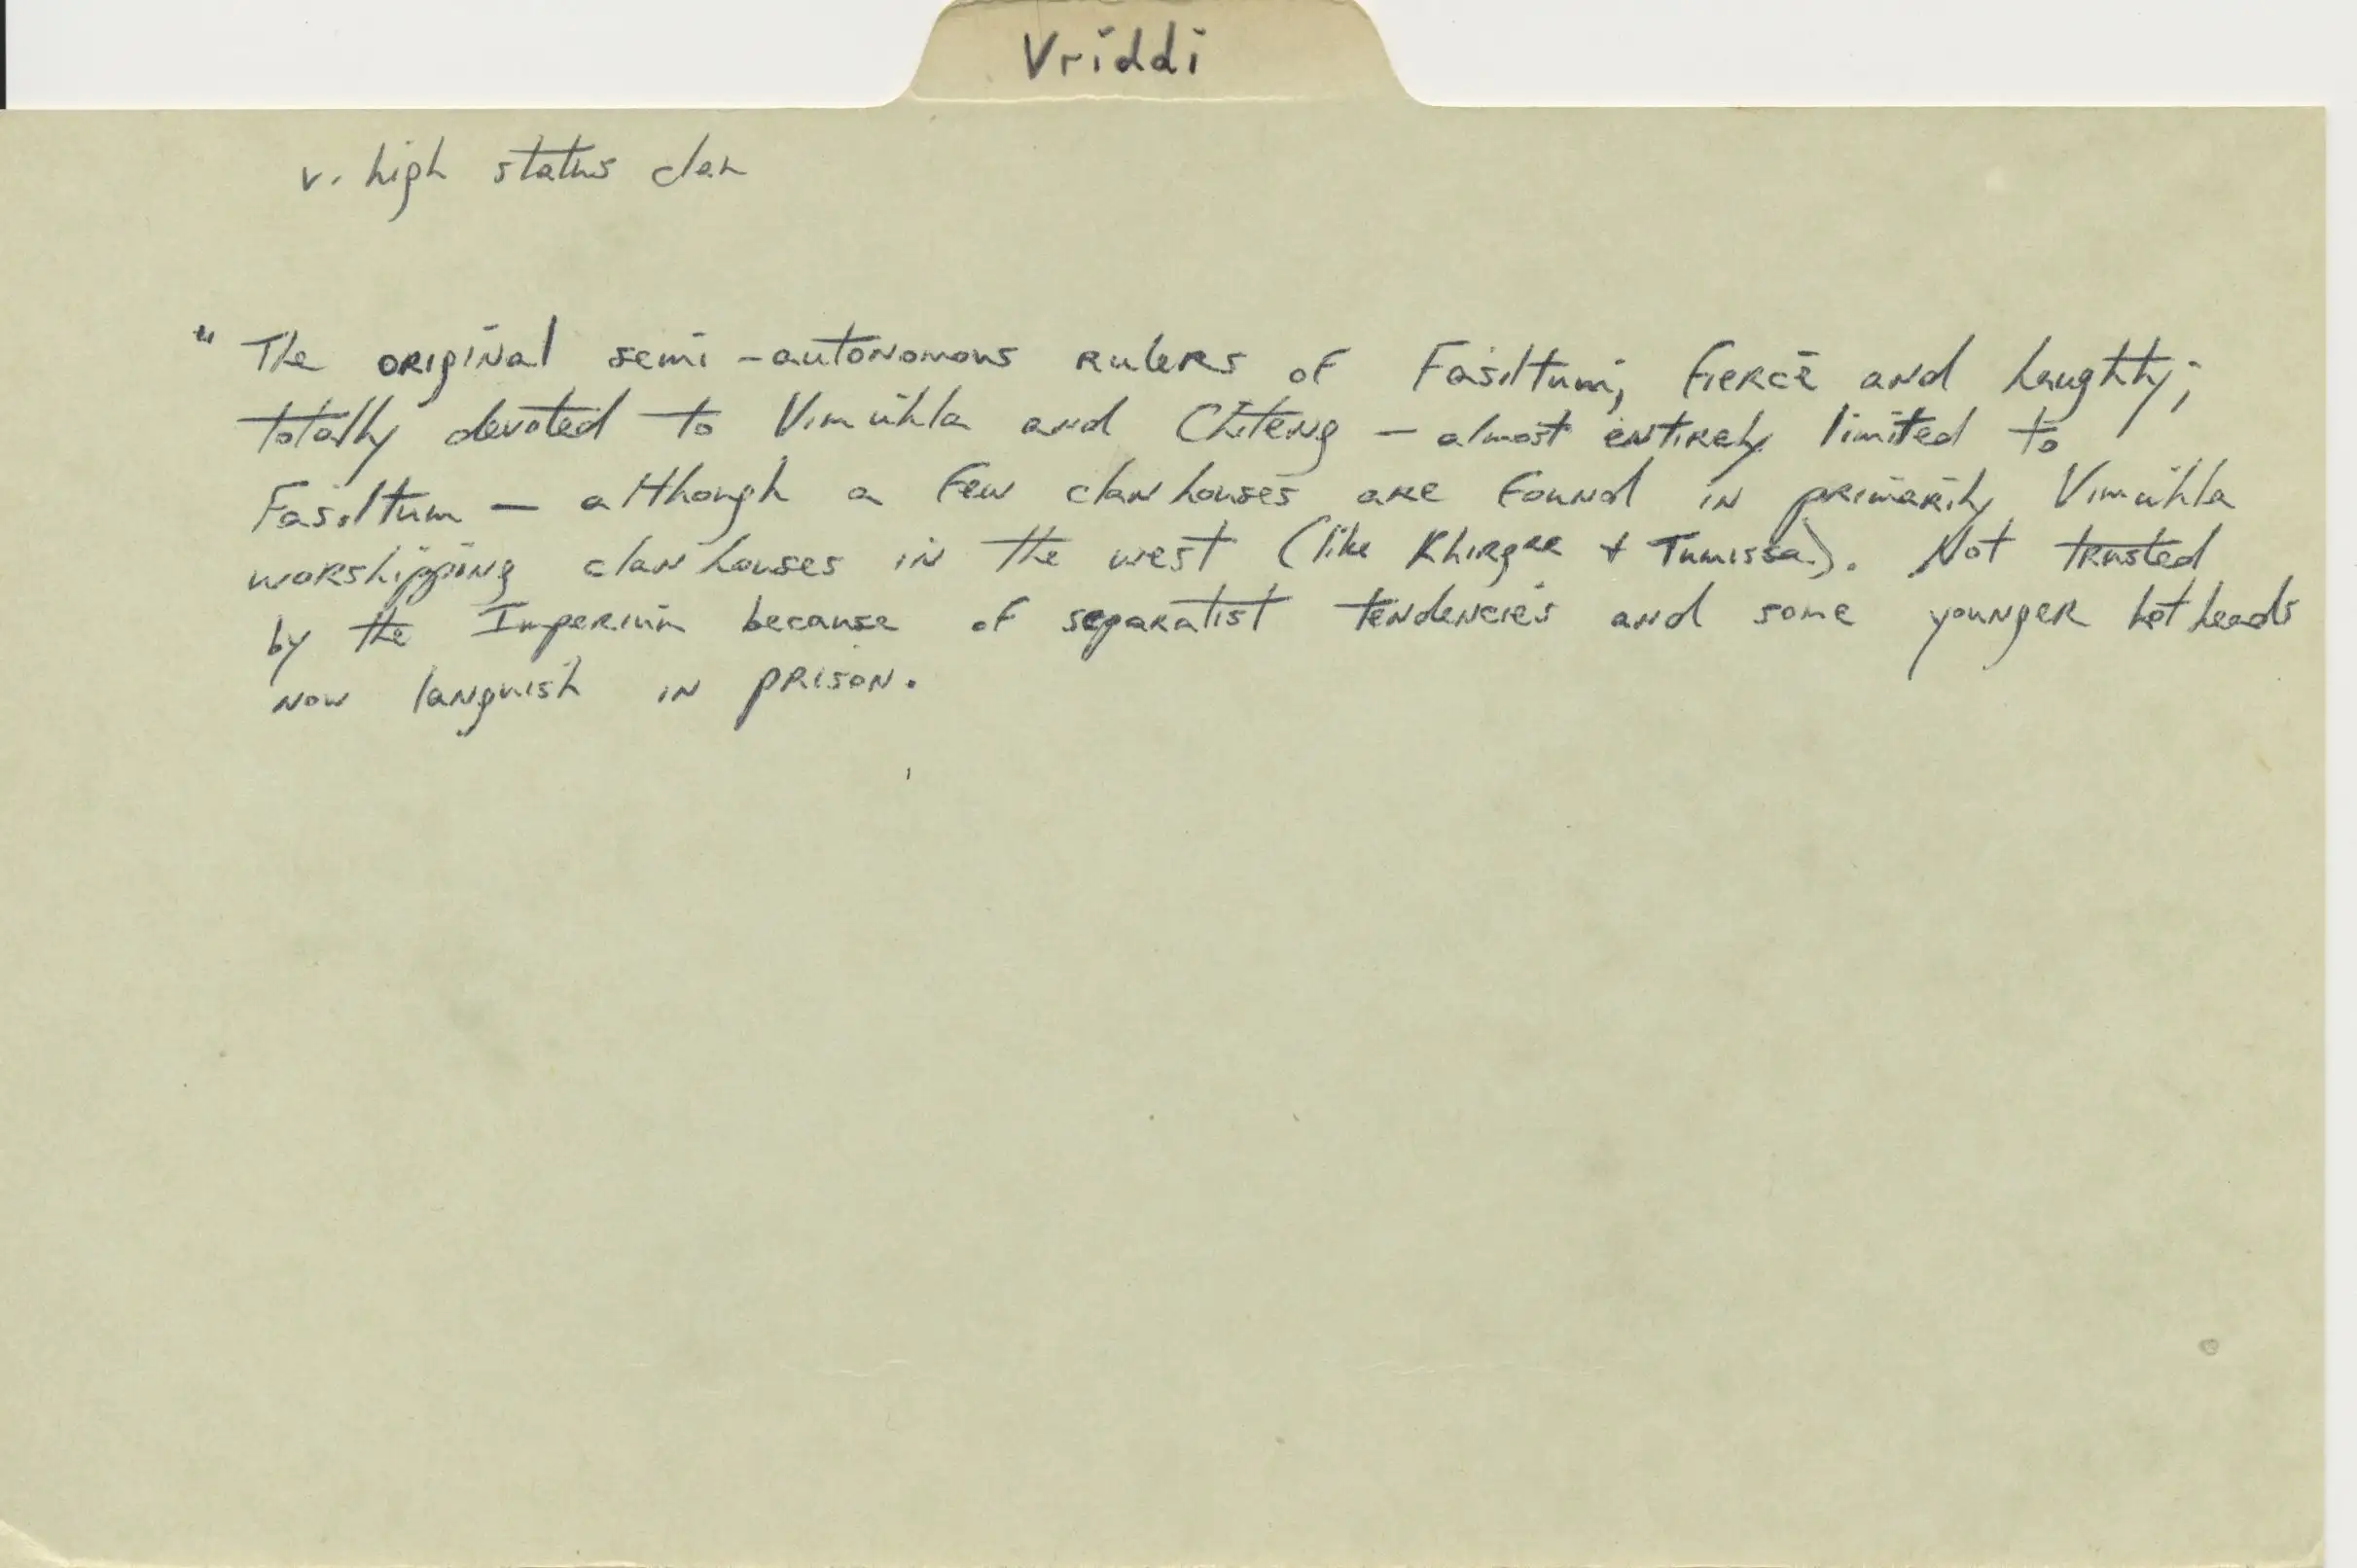 Vriddi
v. high status clan
" The original semi-autonomous rulers of Fasiltum; fierce and haughty;
totally devoted to Vimuhla and Chiteng - almost entirely limited to
Fasiltum - although a few clanhouses are found in primarily Vimuhla
worshipping clanhouses in the west (like Khirgar + Tumissa). Not trusted
by the Imperium because of separatist tendencies and some younger hotheads
now languish in prison.